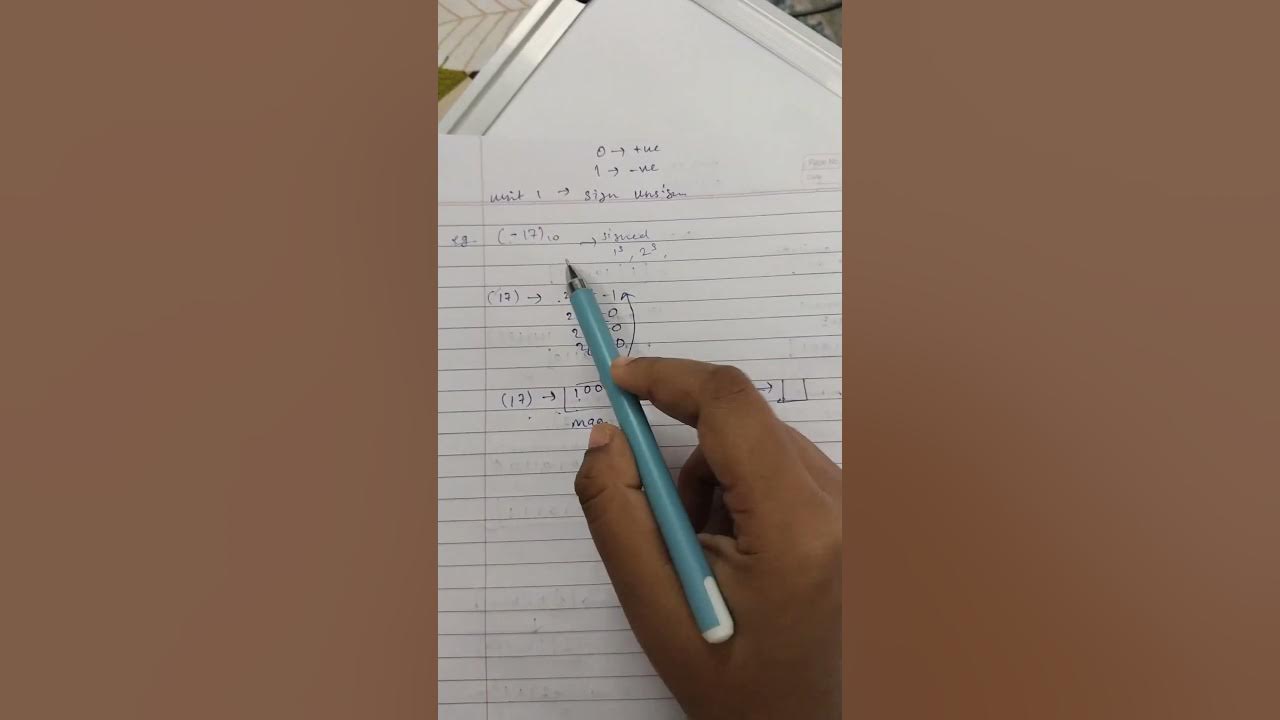 0 → +ve
1 → -ve
Unit 1 → Sign Unsign
eg. (-17)10 → signed
1s, 2s,
(17) → 2 -1
2 0
2 0
2 0
(17) → 100 →
mag